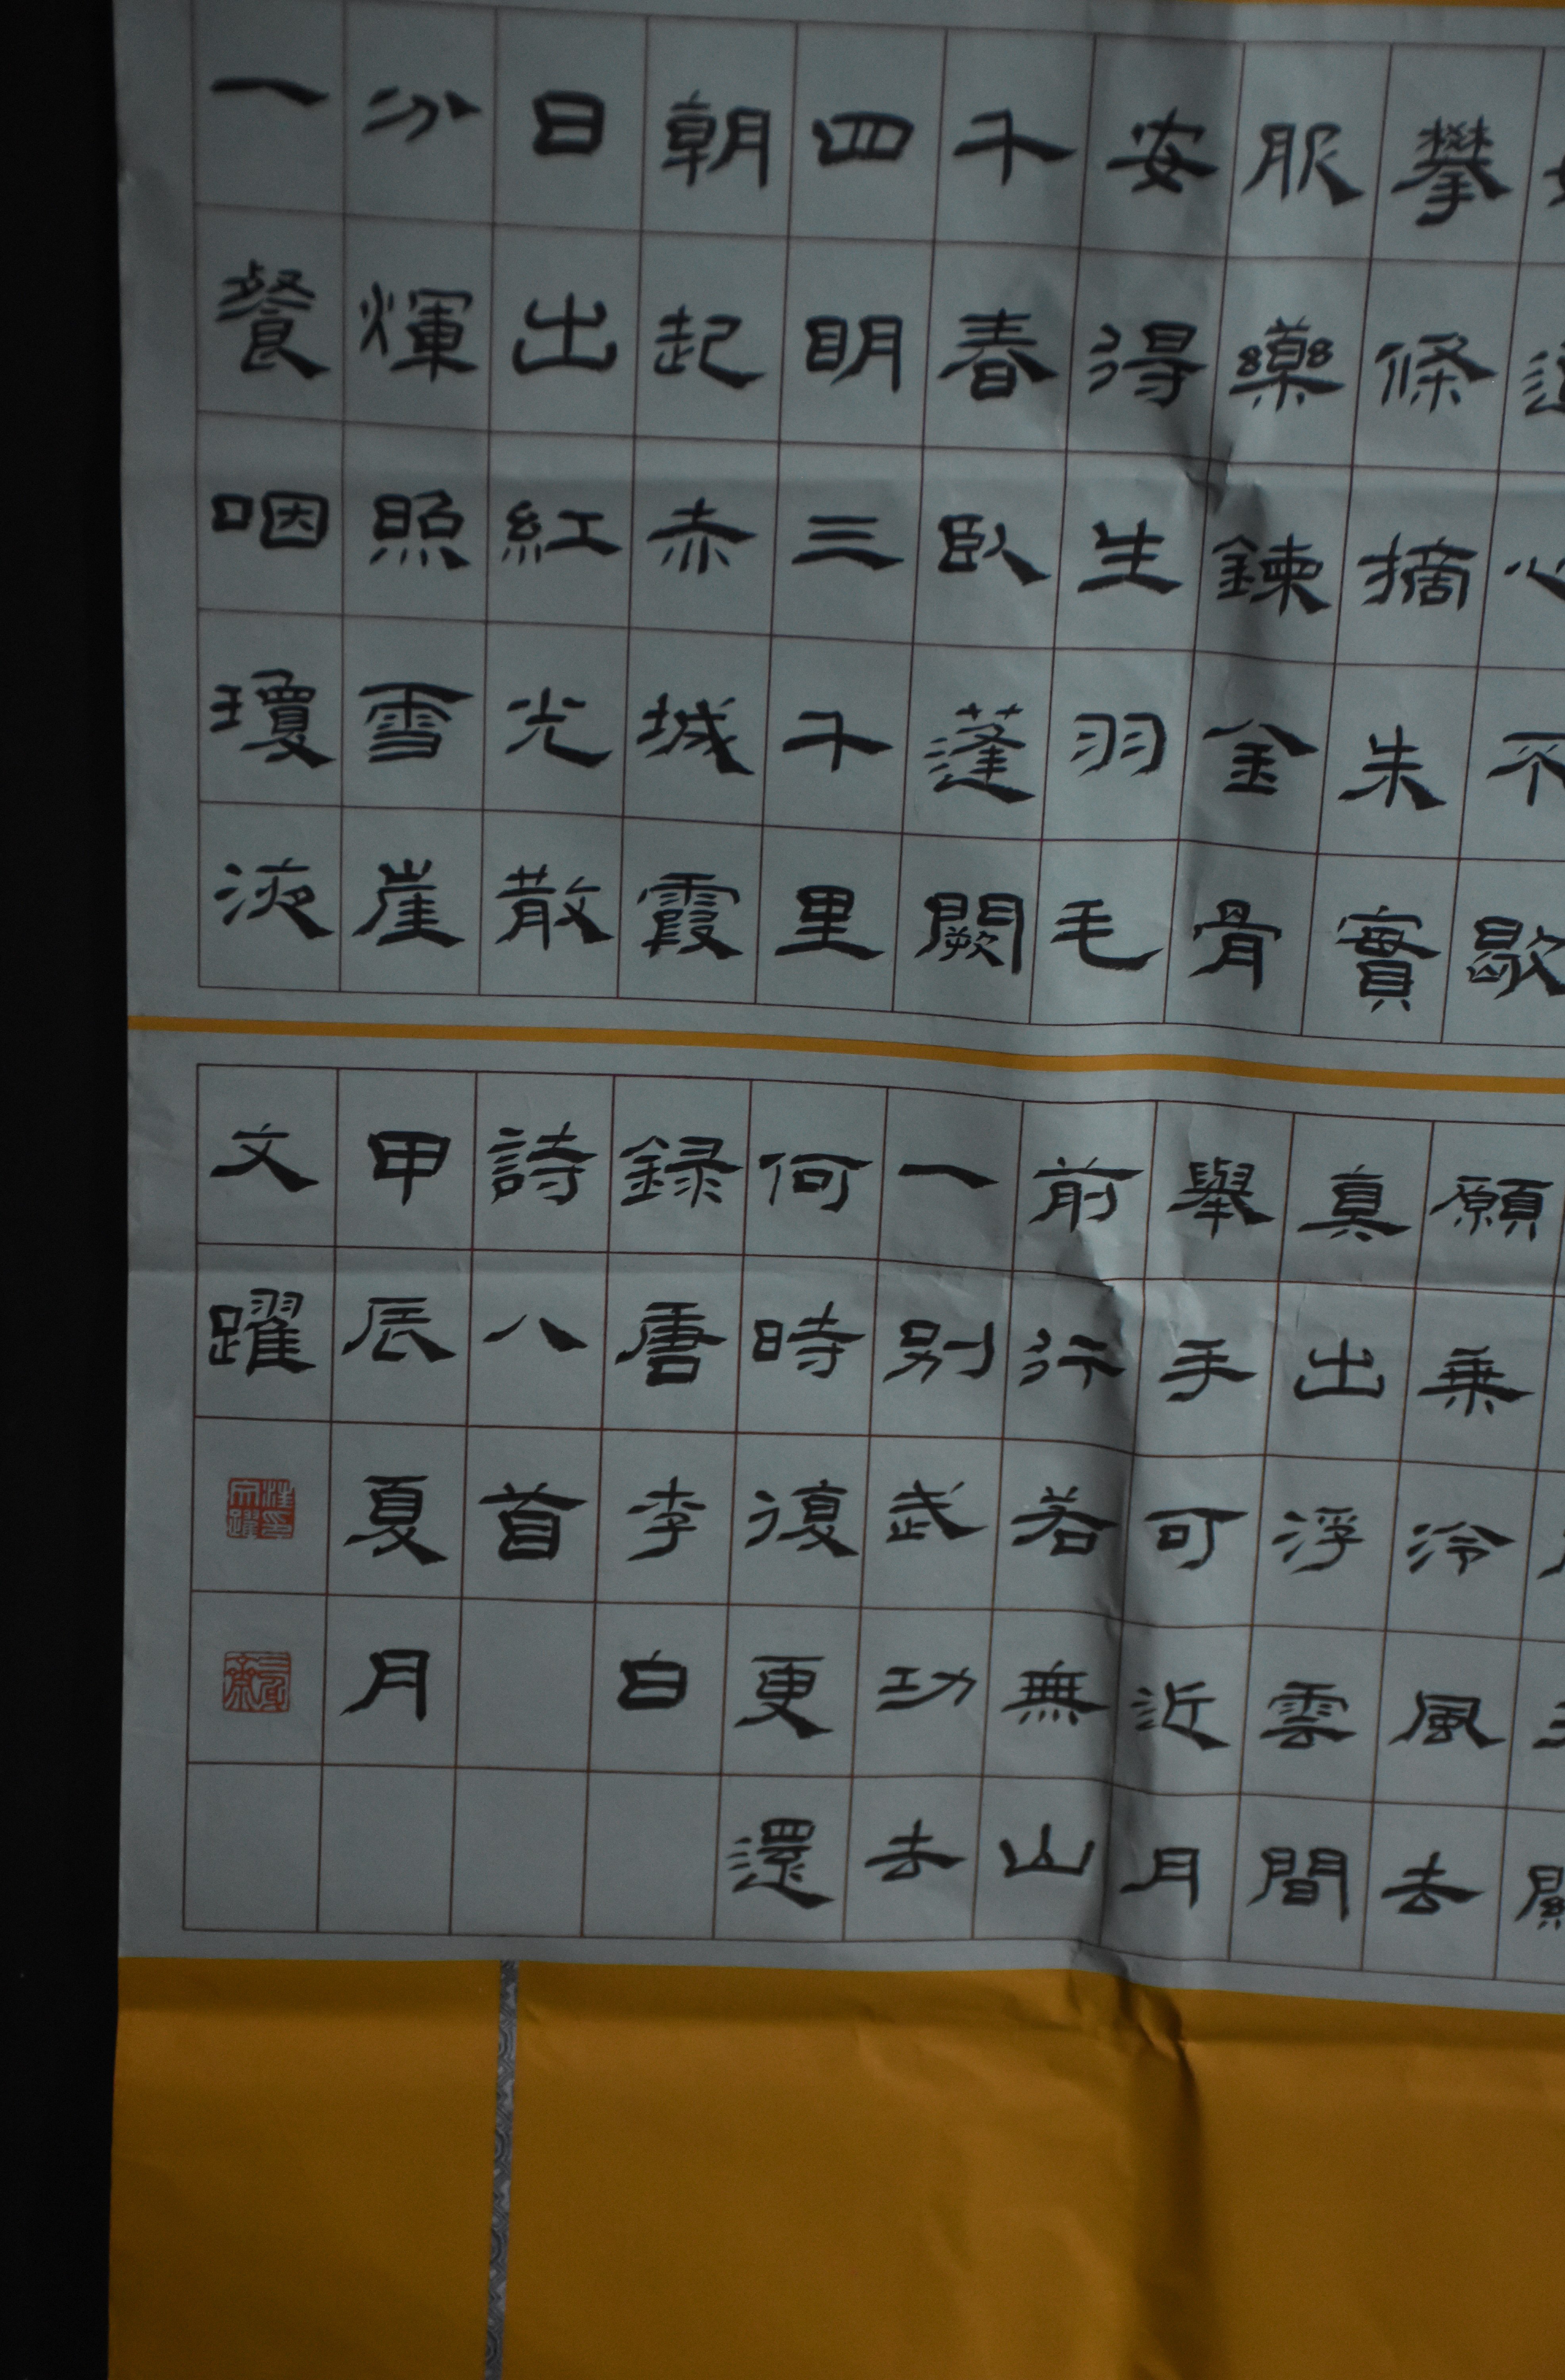 心不歇
攀條摘朱實
服藥鍊金骨
安得生羽毛
千春臥蓬闕
四明三千里
朝起赤城霞
日出紅光散
分煇照雪崖
一餐咽瓊液
願乘泠風去
真出浮雲間
舉手可近月
前行若無山
一別武功去
何時復更還
録唐李白
詩八首
甲辰夏月
文躍